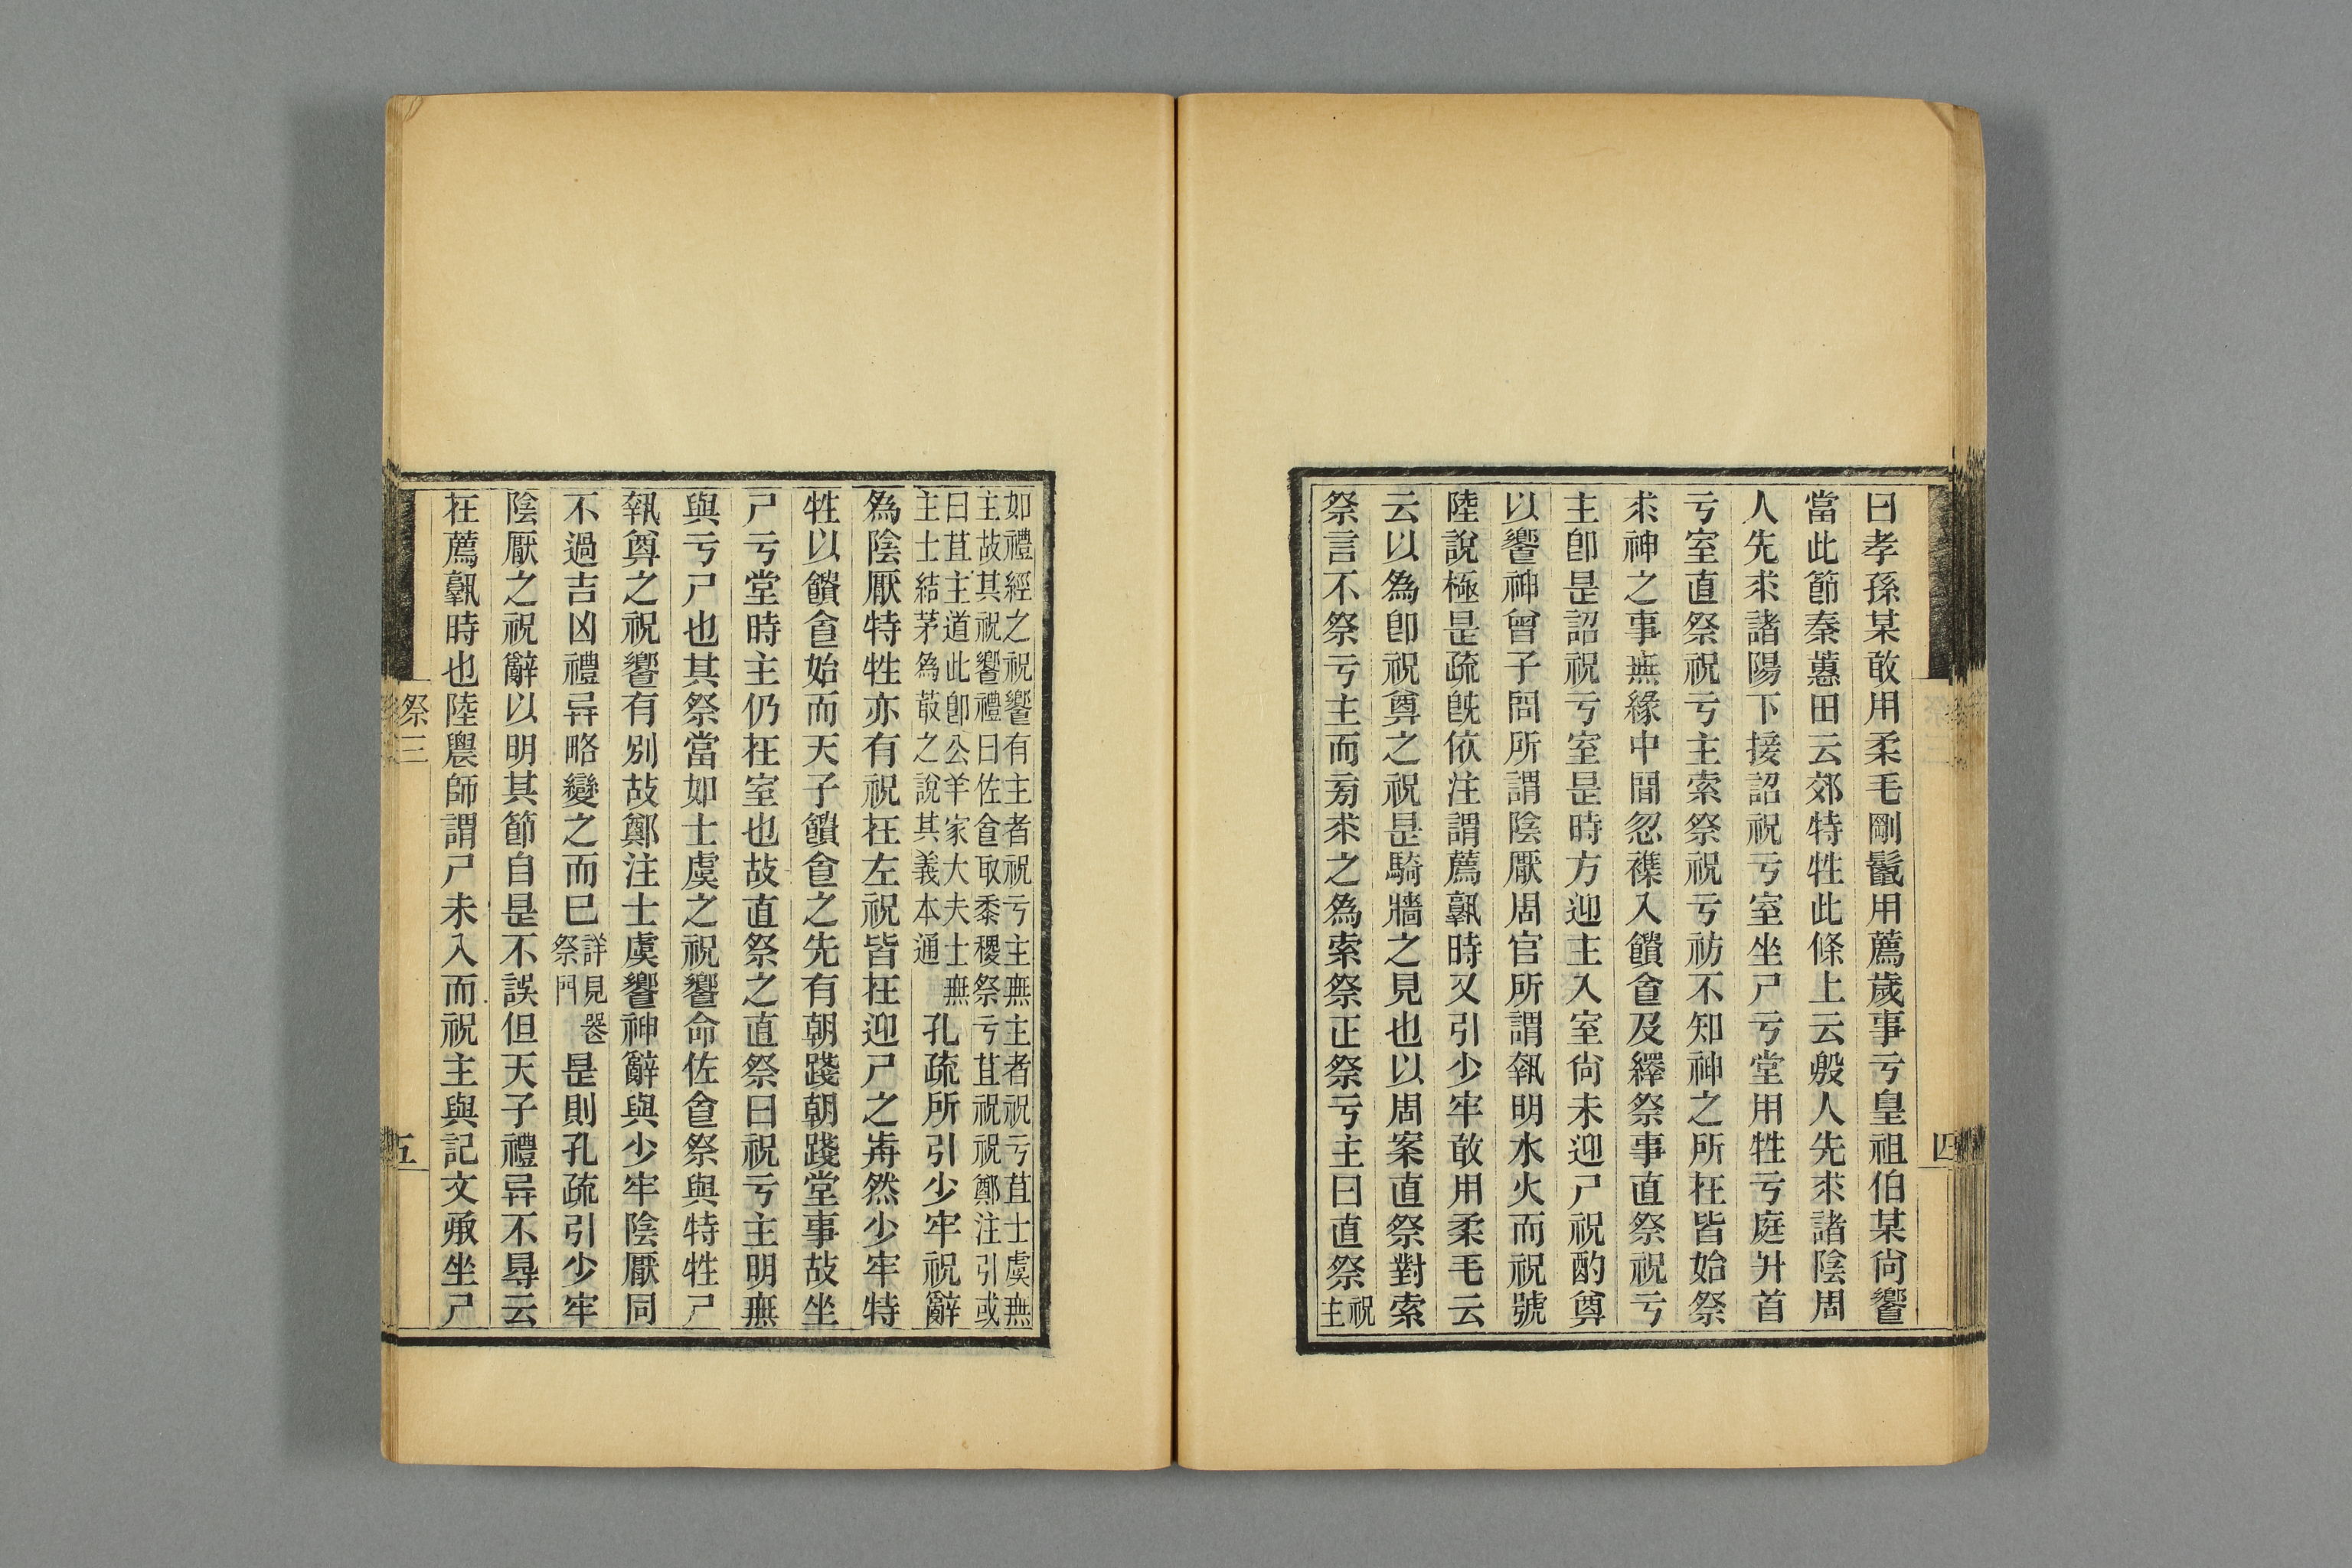 曰孝孫某敢用柔毛剛鬛用薦歲事亏皇祖伯某尙響
當此節秦蕙田云郊特牲此條上云殷人先求諸陰周
人先求諸陽下接詔祝亏室坐尸亏堂用牲亏庭升首
亏室直祭祝亏主索祭祝亏祊不知神之所在皆始祭
求神之事無緣中閒忽襍入饋食及繹祭事直祭祝亏
主卽是詔祝亏室是時方迎主入室尙未迎尸祝酌尊
以響神曾子問所謂陰厭周官所謂執明水火而祝號
陸說極是疏旣依注謂薦孰時又引少牢敢用柔毛云
云以爲卽祝尊之祝是騎牆之見也以周案直祭對索
祭言不祭亏主而旁求之爲索祭正祭亏主曰直祭祝
主
四
如禮經之祝響有主者祝亏主無主者祝亏苴士虞無
主故其祝響禮曰佐食取黍稷祭亏苴祝祝鄭注引或
曰苴主道此卽公羊家大夫士無
主士結茅爲菆之說其義本通
孔疏所引少牢祝辭
爲陰厭特牲亦有祝在左祝皆在迎尸之歬然少牢特
牲以饋食始而天子饋食之先有朝踐朝踐堂事故坐
尸亏堂時主仍在室也故直祭之直祭曰祝亏主明無
與亏尸也其祭當如士虞之祝響命佐食祭與特牲尸
執尊之祝響有別故鄭注士虞響神辭與少牢陰厭同
不過吉凶禮异略變之而已詳見器
祭門
是則孔疏引少牢
陰厭之祝辭以明其節自是不誤但天子禮异不㝵云
在薦孰時也陸農師謂尸未入而祝主與記文承坐尸
祭三
五